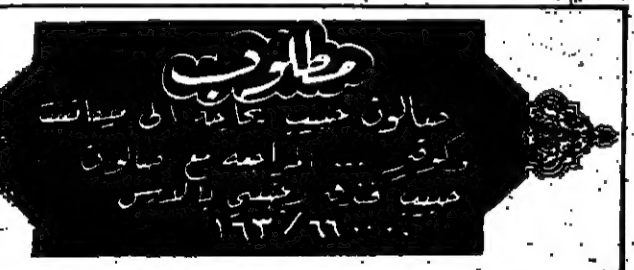 مطلوب
صالون حبيب بحاجة الى
وكوافير ... المراجعه مع صالون
حبيب فندق بالاس
١٦٣/٦٦٠٠٠٠